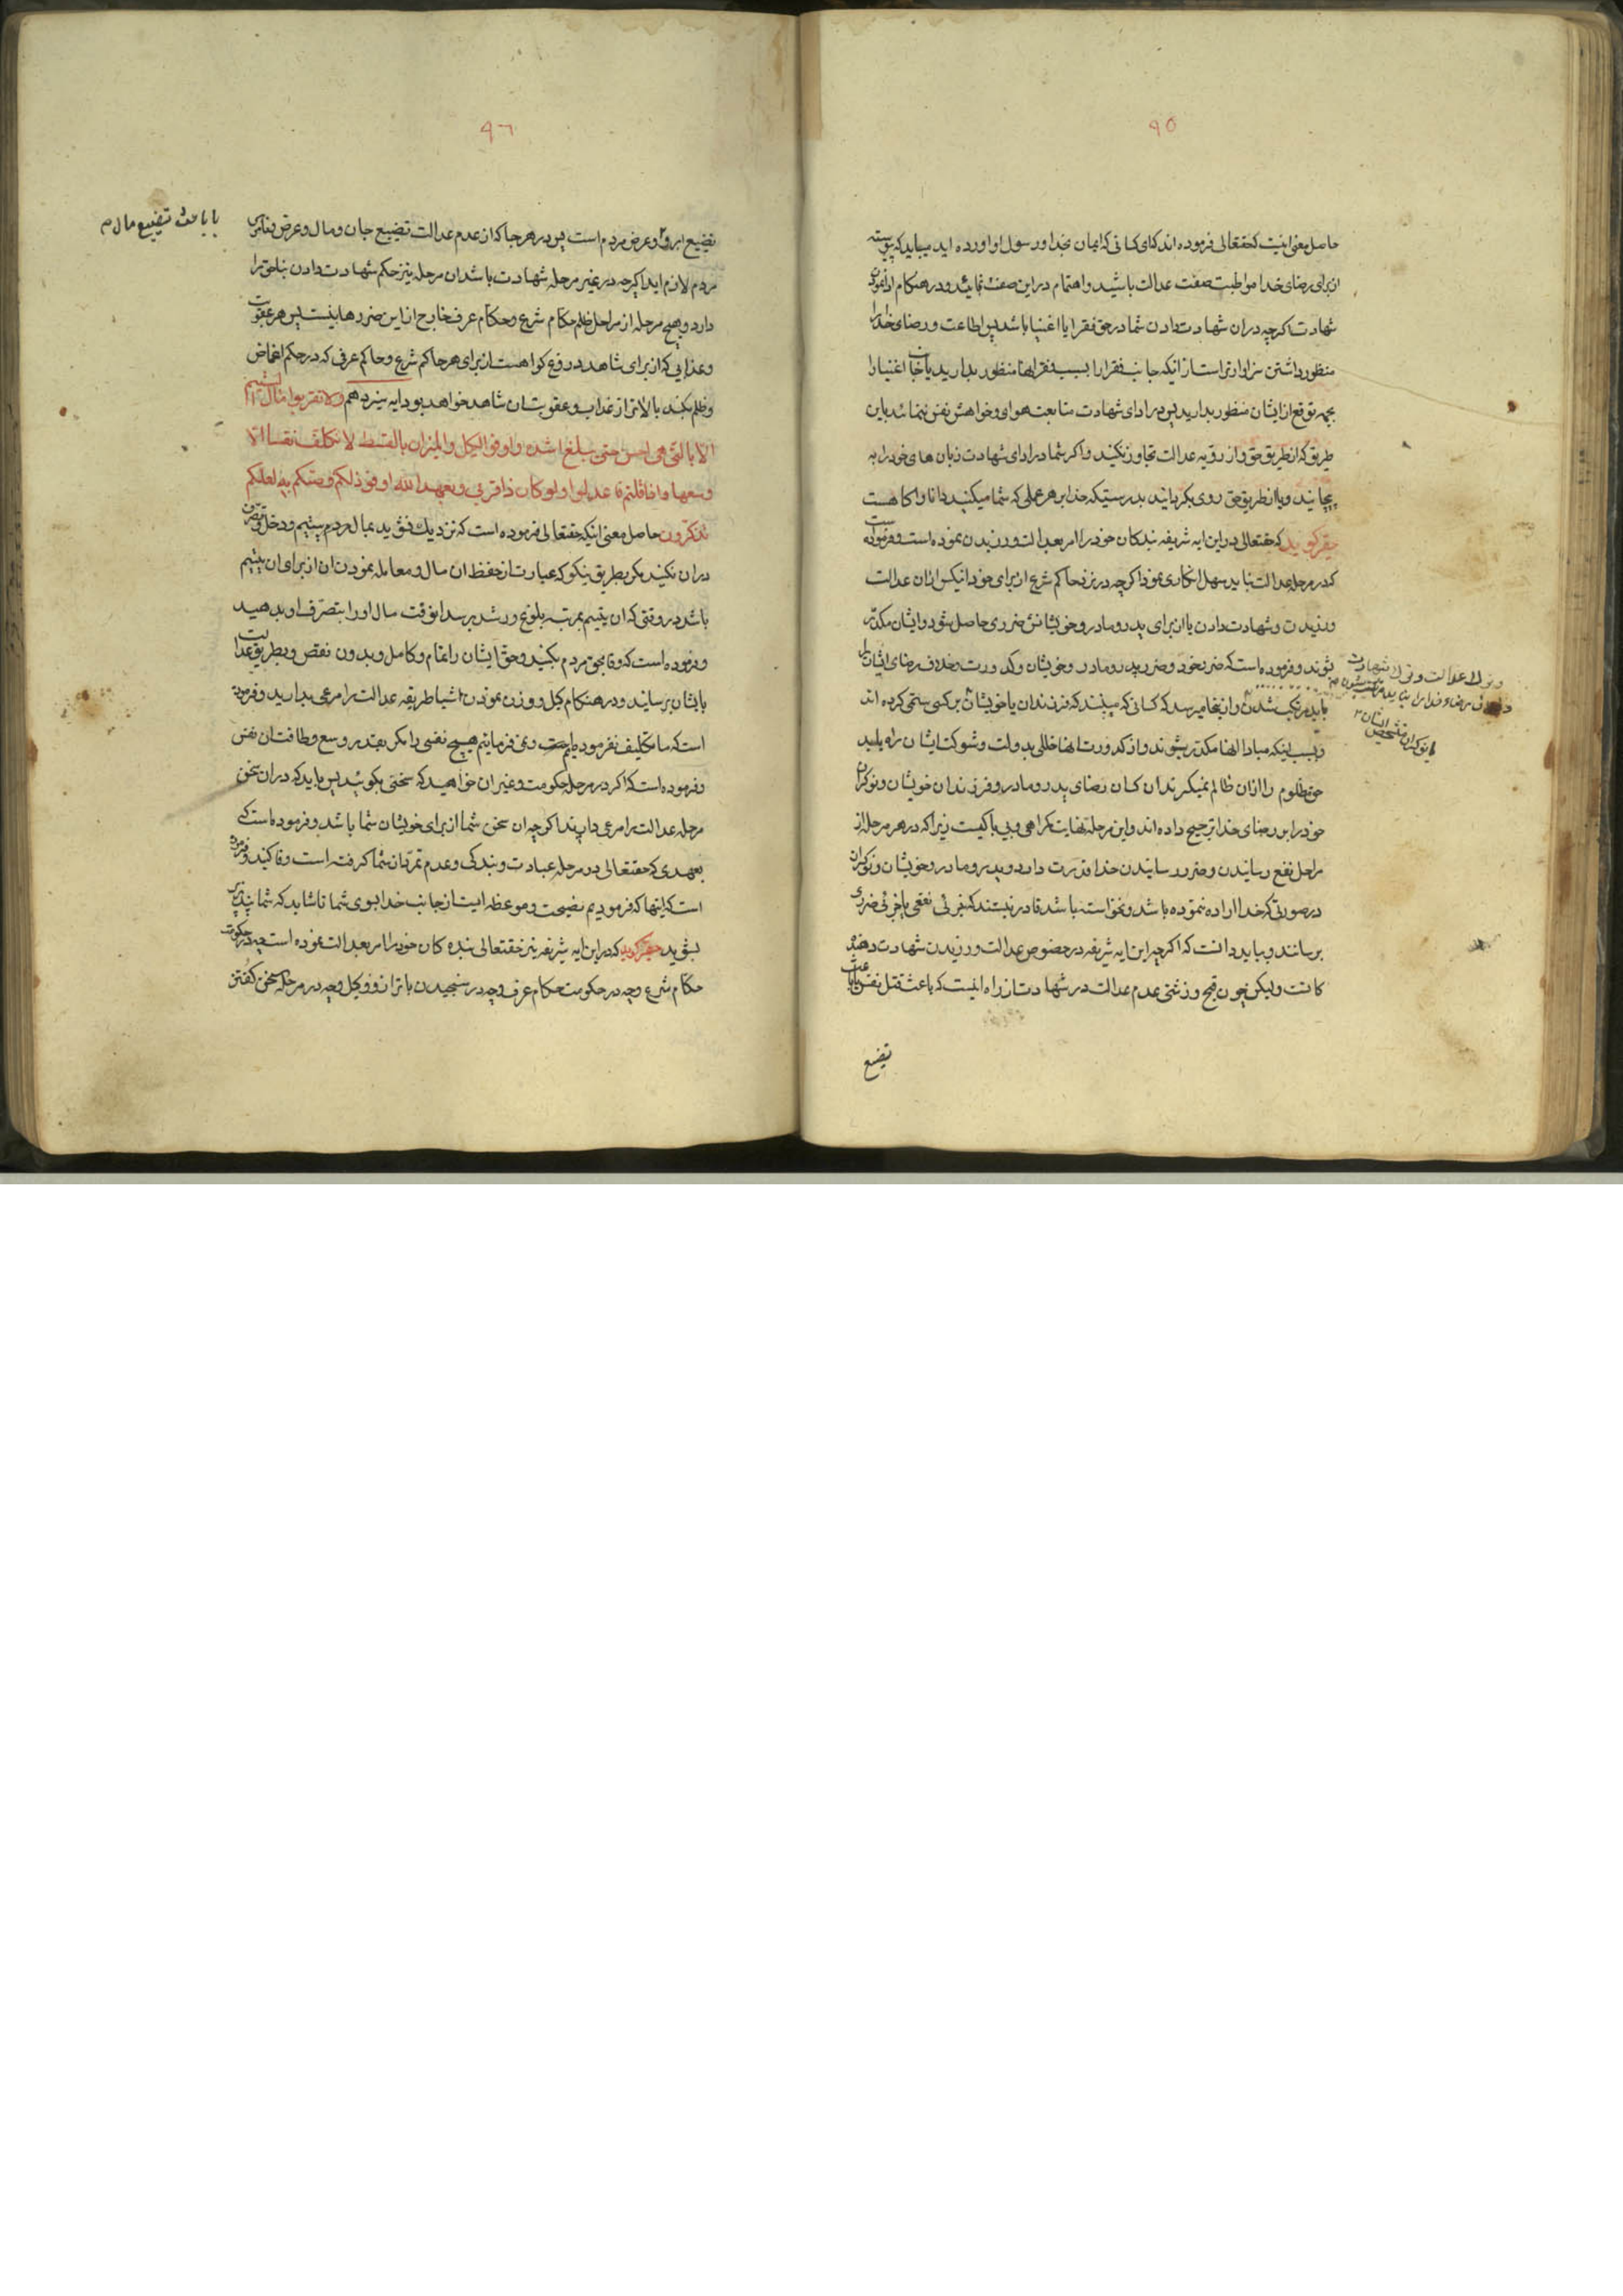 ۹۵
حاصل معنی اینست که حقتعالی فرموده اند که ای کسانی که ایمان بخدا و رسول او اورده اید میباید که پیوسته
از برای رضای خدا مواظبت صفت عدالت باشید و اهتمام در این صفت نمائید و در هنکام ادا نمودن
شهادت اکرچه در ان شهادت دادن شما در حق فقرا یا اغنیا باشد پس اطاعت و رضای خدا را
منظور داشتن سزاوارتر است از انیکه جانب فقرا را بسبب فقر انها منظور بدارید یا جانب اغنیا را
بجهه توقع از ایشان منظور بدارید پس در ادای شهادت متابعت هوای و خواهش نفس ننمائید باین
طریق که از طریق حق و از رویه عدالت تجاوز نکنید و اکر شما در ادای شهادت زبان های خود را به
پیچانید و یا از طریق حق روی بکردانید بدرستیکه خدا بر هر عملی که شما میکنید دانا و اکاهست
حقیر کوید که حقتعالی در این ایه شریفه بندکان خود را امر بعدالت ورزیدن نموده است و فرموده است
که در مرحله عدالت نباید سهل انکاری نمود اکرچه در نزد حاکم شرع از برای خود انکس از ان عدالت
ورزیدن و شهادت دادن یا از برای پدر و مادر و خویشانش ضرری حاصل شود و ایشان مکدر
شوند و فرموده است که ضرر بخود و ضرر پدر و مادر و خویشان و کدورت بخلاف رضای ایشان را
باید مرتکب شدن و از اینجا میرسد که کسانی که میبینند که فرزندان یا خویشان بر کسی ستمی کرده اند
و بسبب اینکه مبادا انها مکدر بشوند و از کدورت انها خللی بدولت و شوکت ایشان راه یابد
حق مظلوم را از ان ظالم نمیکیرند ان کسان رضای پدر و مادر و فرزندان خویشان و نوکران
خود را بر رضای خدا ترجیح داده اند و این مرحله نهایت کمراهی و بی باکیست زیرا که در هر مرحله از
مراحل نفع رسانیدن و ضرر رسانیدن خدا قدرت دارد و پدر و مادر و خویشان و نوکران
در صورتی که خدا اراده ننموده باشد و نخواسته باشد قادر نیستند که بغیر نفعی یا ضرری
برسانند و بباید دانست که اکرچه این ایه شریفه در خصوص عدالت ورزیدن شهادت دهنده
کانست ولیکن چون قبح و زشتی عدم عدالت در شهادت از راه اینست که باعث قتل نفس یا باعث
تضیع
ورزیدن عدالت و ترک شهادت
و خلاف رضاء خدا را نباید مرتکب شدن
یا نوکران مشخص ایشان
۹۶
تضیع ابرو و عرض مردم است پس در هر جا که از عدم عدالت تضییع جان و مال و عرض و ناموس
مردم لازم اید اکرچه در غیر مرحله شهادت باشد ان مرحله نیز حکم شهادت دادن بناحق را
دارد و هیچ مرحله از مراحل ظلم حکام شرع و حکام عرف خارج از این ضررها نیست پس هر عقوبت
و عذابی که از برای شاهد دروغ کو است از برای هر حاکم شرع و حاکم عرفی که در حکم اغماض
و ظلم بکند بالاتر از عذاب و عقوبت ان شاهد خواهد بود ایه سیزدهم ولا تقربوا مال الیتیم
الا بالتی هی احسن حتی یبلغ اشده واوفوا الکیل والمیزان بالقسط لا نکلف نفسا الا
وسعها واذا قلتم فاعدلوا ولو کان ذا قربی وبعهد الله اوفوا ذلکم وصیکم به لعلکم
تذکرون حاصل معنی اینکه حقتعالی فرموده است که نزدیک نشوید بمال مردم یتیم و دخل و تصرف
در ان نکنید مکر بطریق نیکو که عبارت از حفظ ان مال و معامله نمودن ان از برای ان یتیم
باشد در وقتی که ان یتیم بمرتبه بلوغ و رشد برسد انوقت مال او را بتصرف او بدهید
و فرموده است که وفا بحق مردم بکنید و حق ایشان را تمام و کامل و بدون نقص و بطریق عدالت
بایشان برسانید و در هنکام کیل و وزن نمودن اشیا طریقه عدالت را مرعی بدارید و فرموده
است که ما تکلیف نفرموده ایم و نمی فرمائیم هیچ نفسی را مکر بقدر وسع و طاقت ان نفس
و فرموده است که اکر در مرحله حکومت و غیر ان خواهید که سخنی بکوئید پس باید که در ان سخن
مرحله عدالت را مرعی دارید اکرچه ان سخن شما از برای خویشان شما باشد و فرموده است که
بعهدی که حقتعالی در مرحله عبادت و بندکی و عدم تمرد از شما کرفته است وفا کنید و فرموده
است که اینها که فرمودیم نصیحت و موعظه ایست از جانب خدا بسوی شما تا شاید که شما پند پذیر
بشوید حقیر کوید که در این ایه شریفه نیز حقتعالی بنده کان خود را امر بعدالت نموده است چه در حکومت
حکام شرع و چه در حکومت حکام عرف و چه در سنجیدن با ترازو و کیل و چه در مرحله سخن کفتن
یا باعث تضییع مال